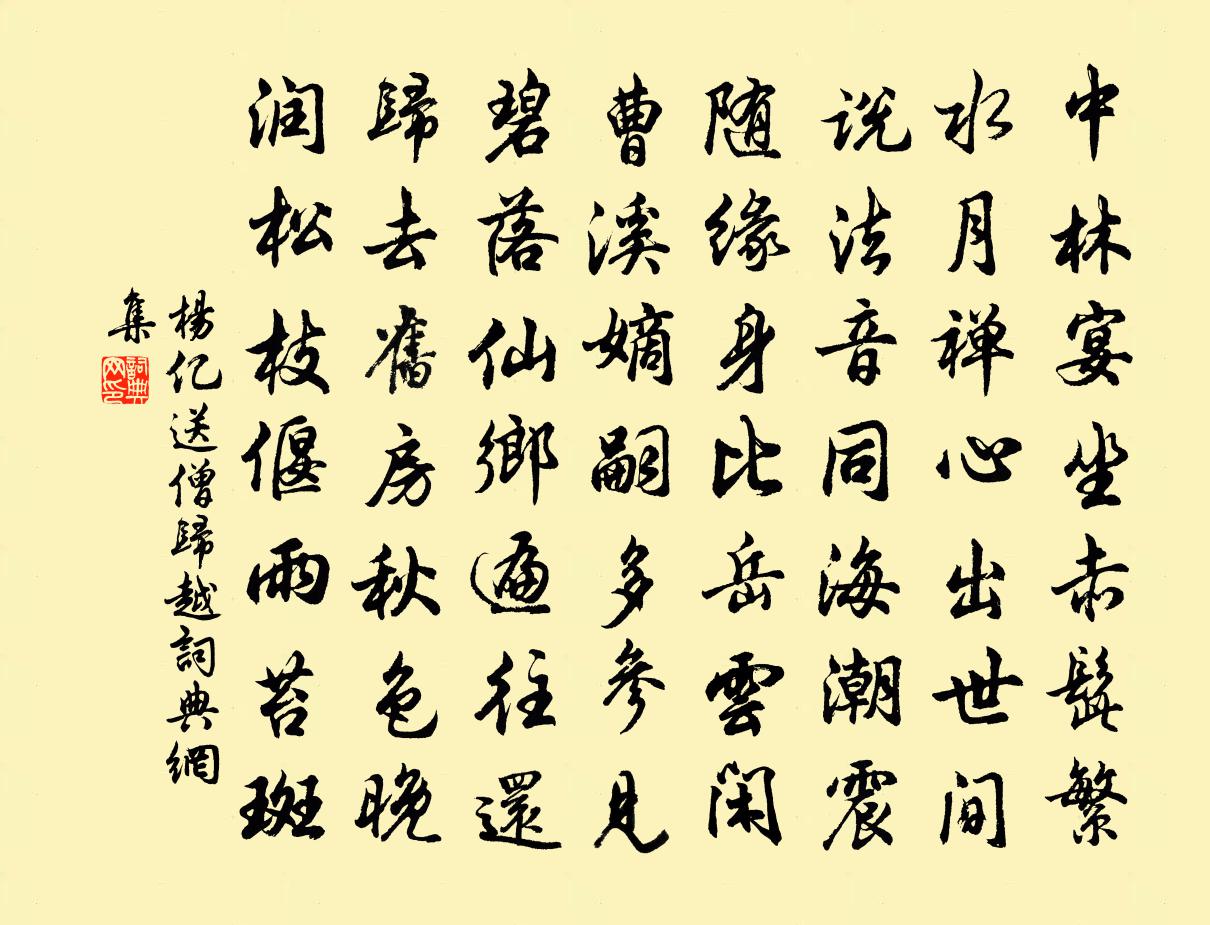 中林宴坐赤髭繁
水月禅心出世间
説法音同海潮震
随缘身比岳雲闲
曹溪嫡嗣多參見
碧落仙鄉遍往還
歸去舊房秋色晚
润松枝偃雨苔斑
楊亿送僧歸越詞典網
集
詞典网印